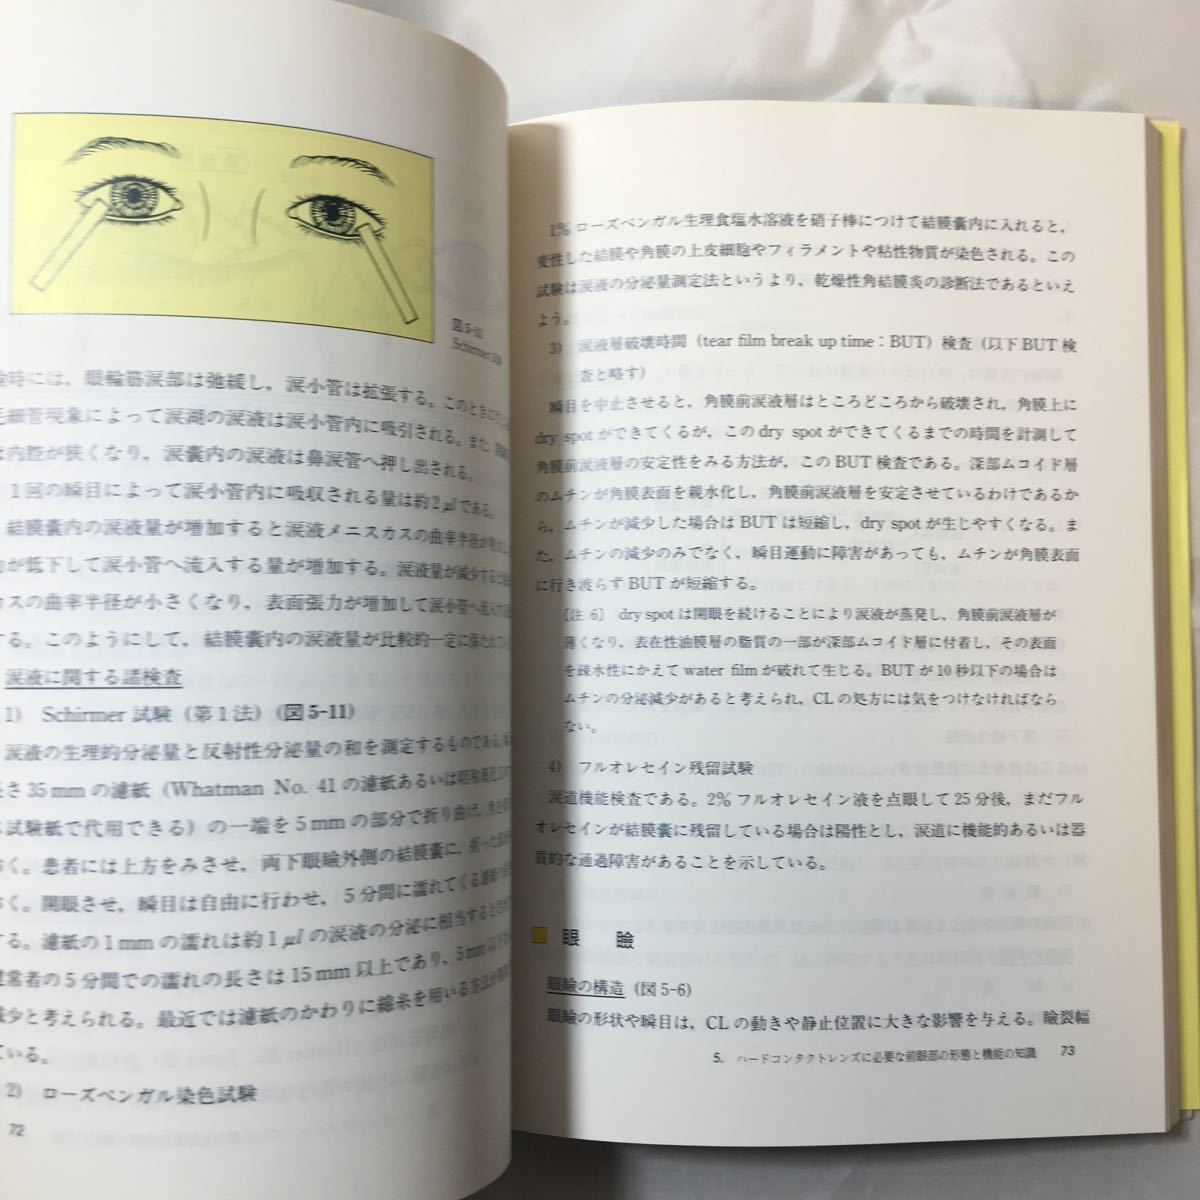 図5-11
Schirmer試験
時には，眼輪筋涙部は弛緩し，涙小管は拡張する。このときに
毛細管現象によって涙湖の涙液は涙小管内に吸引される。また，
は内腔が狭くなり，涙嚢内の涙液は鼻涙管へ押し出される。
1回の瞬目によって涙小管内に吸収される量は約2μlである。
結膜嚢内の涙液量が増加すると涙液メニスカスの曲率半径が
が低下して涙小管へ流入する量が増加する。涙液量が減少すると
カスの曲率半径が小さくなり，表面張力が増加して涙小管へ流入する
する。このようにして，結膜嚢内の涙液量が比較的一定に保たれ
涙液に関する諸検査
1) Schirmer試験（第1法）(図5-11)
涙液の生理的分泌量と反射性分泌量の和を測定するものである。
長さ35mmの濾紙（Whatman No. 41の濾紙あるいは昭和
試験紙で代用できる）の一端を5mmの部分で折り曲げ，
く。患者には上方をみさせ，両下眼瞼外側の結膜嚢に，折った
く。開眼させ，瞬目は自由に行わせ，5分間に濡れてくる濾紙
する。濾紙の1mmの濡れは約1μlの涙液の分泌に相当するとき
健常者の5分間での濡れの長さは15mm以上であり，5mm以下
減少と考えられる。最近では濾紙のかわりに綿糸を用いる方法が
ている。
2) ローズベンガル染色試験
72
1%ローズベンガル生理食塩水溶液を硝子棒につけて結膜嚢内に入れると，
変性した結膜や角膜の上皮細胞やフィラメントや粘性物質が染色される。この
試験は涙液の分泌量測定法というより，乾燥性角結膜炎の診断法であるといえ
よう。
3) 涙液層破壊時間（tear film break up time：BUT）検査（以下BUT検
査と略す）
瞬目を中止させると，角膜前涙液層はところどころから破壊され，角膜上に
dry spotができてくるが，このdry spotができてくるまでの時間を計測して
角膜前涙液層の安定性をみる方法が，このBUT検査である。深部ムコイド層
のムチンが角膜表面を親水化し，角膜前涙液層を安定させているわけであるか
ら，ムチンが減少した場合はBUTは短縮し，dry spotが生じやすくなる。ま
た，ムチンの減少のみでなく，瞬目運動に障害があっても，ムチンが角膜表面
に行き渡らずBUTが短縮する。
〔注 6〕 dry spotは開眼を続けることにより涙液が蒸発し，角膜前涙液層が
薄くなり，表在性油膜層の脂質の一部が深部ムコイド層に付着し，その表面
を疎水性にかえてwater filmが破れて生じる。BUTが10秒以下の場合は
ムチンの分泌減少があると考えられ，CLの処方には気をつけなければなら
ない。
4) フルオレセイン残留試験
涙道機能検査である。2%フルオレセイン液を点眼して25分後，まだフル
オレセインが結膜嚢に残留している場合は陽性とし，涙道に機能的あるいは器
質的な通過障害があることを示している。
眼　瞼
眼瞼の構造（図5-6）
眼瞼の形状や瞬目は，CLの動きや静止位置に大きな影響を与える。瞼裂幅
5. ハードコンタクトレンズに必要な前眼部の形態と機能の知識 73